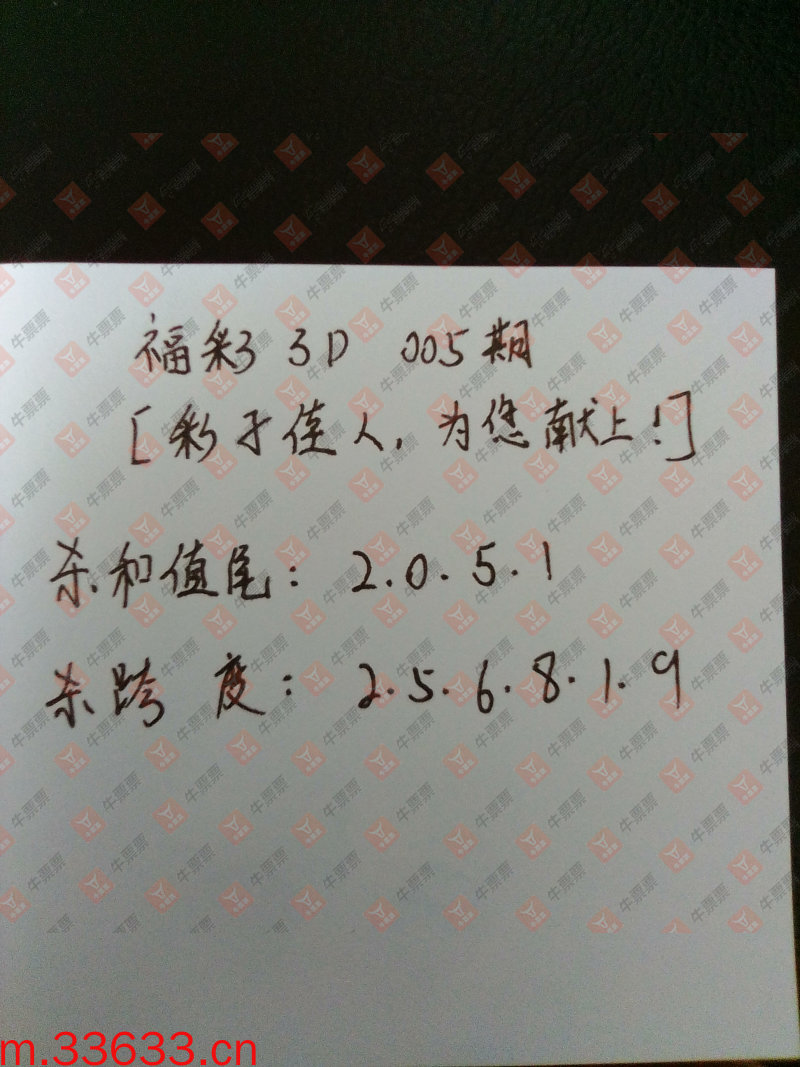 福彩 3D 005期
[彩子佳人,为您献上!]
杀和值尾: 2.0.5.1
杀跨 度: 2.5.6.8.1.9
牛票票
m.33633.cn